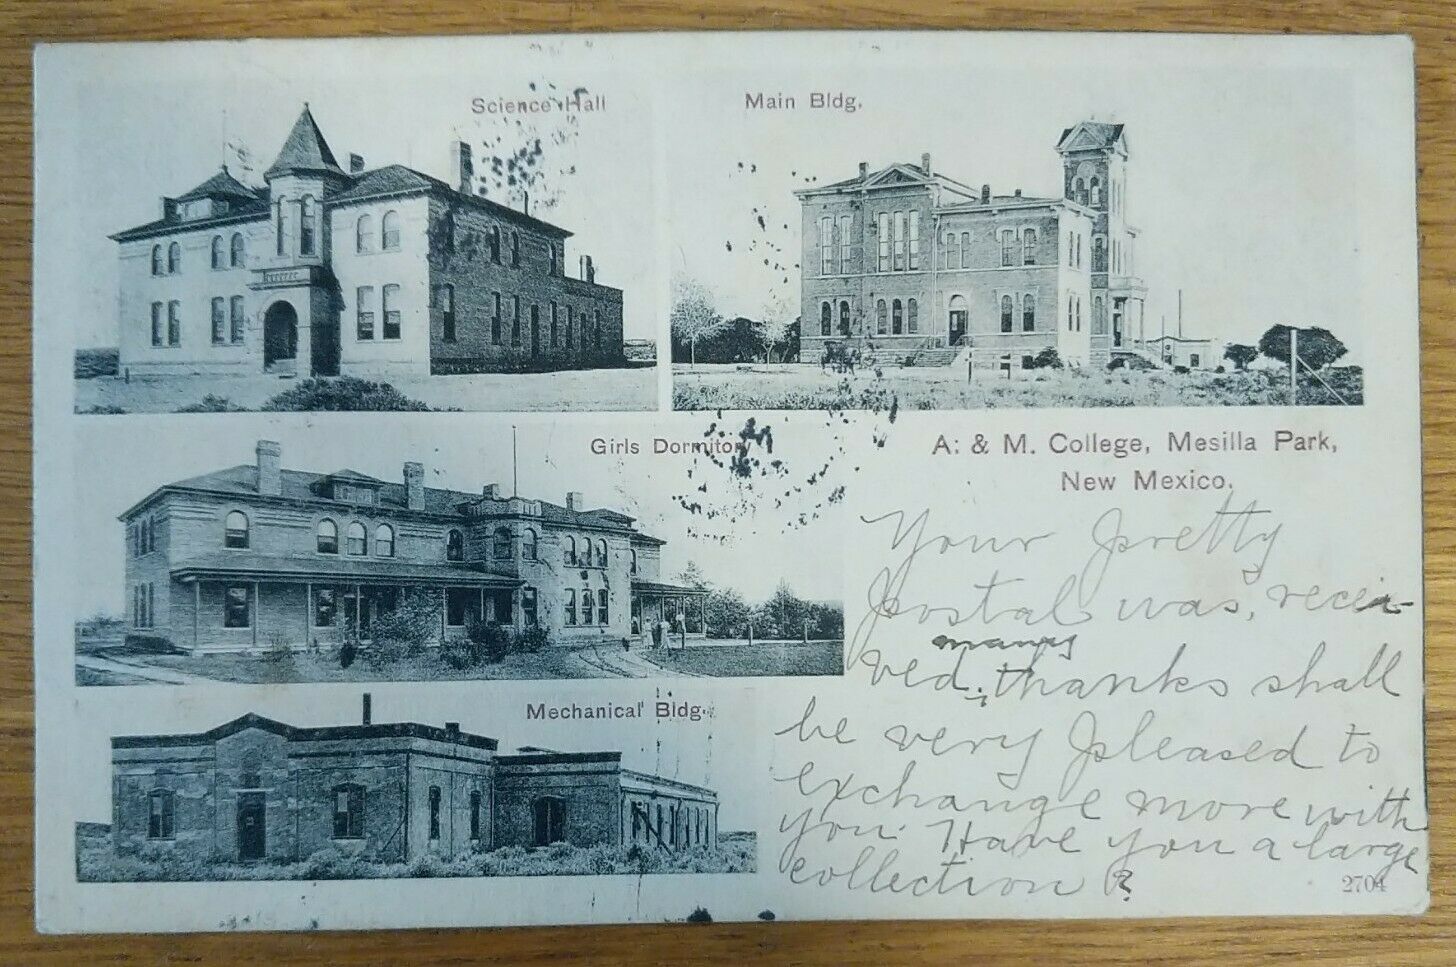 Science Hall
Main Bldg.
Girls Dormitory
A. & M. College, Mesilla Park,
New Mexico.
Mechanical Bldg.
Your pretty
postal was, recei-
many
ved, thanks shall
be very pleased to
exchange more with
you. Have you a large
collection?
2704